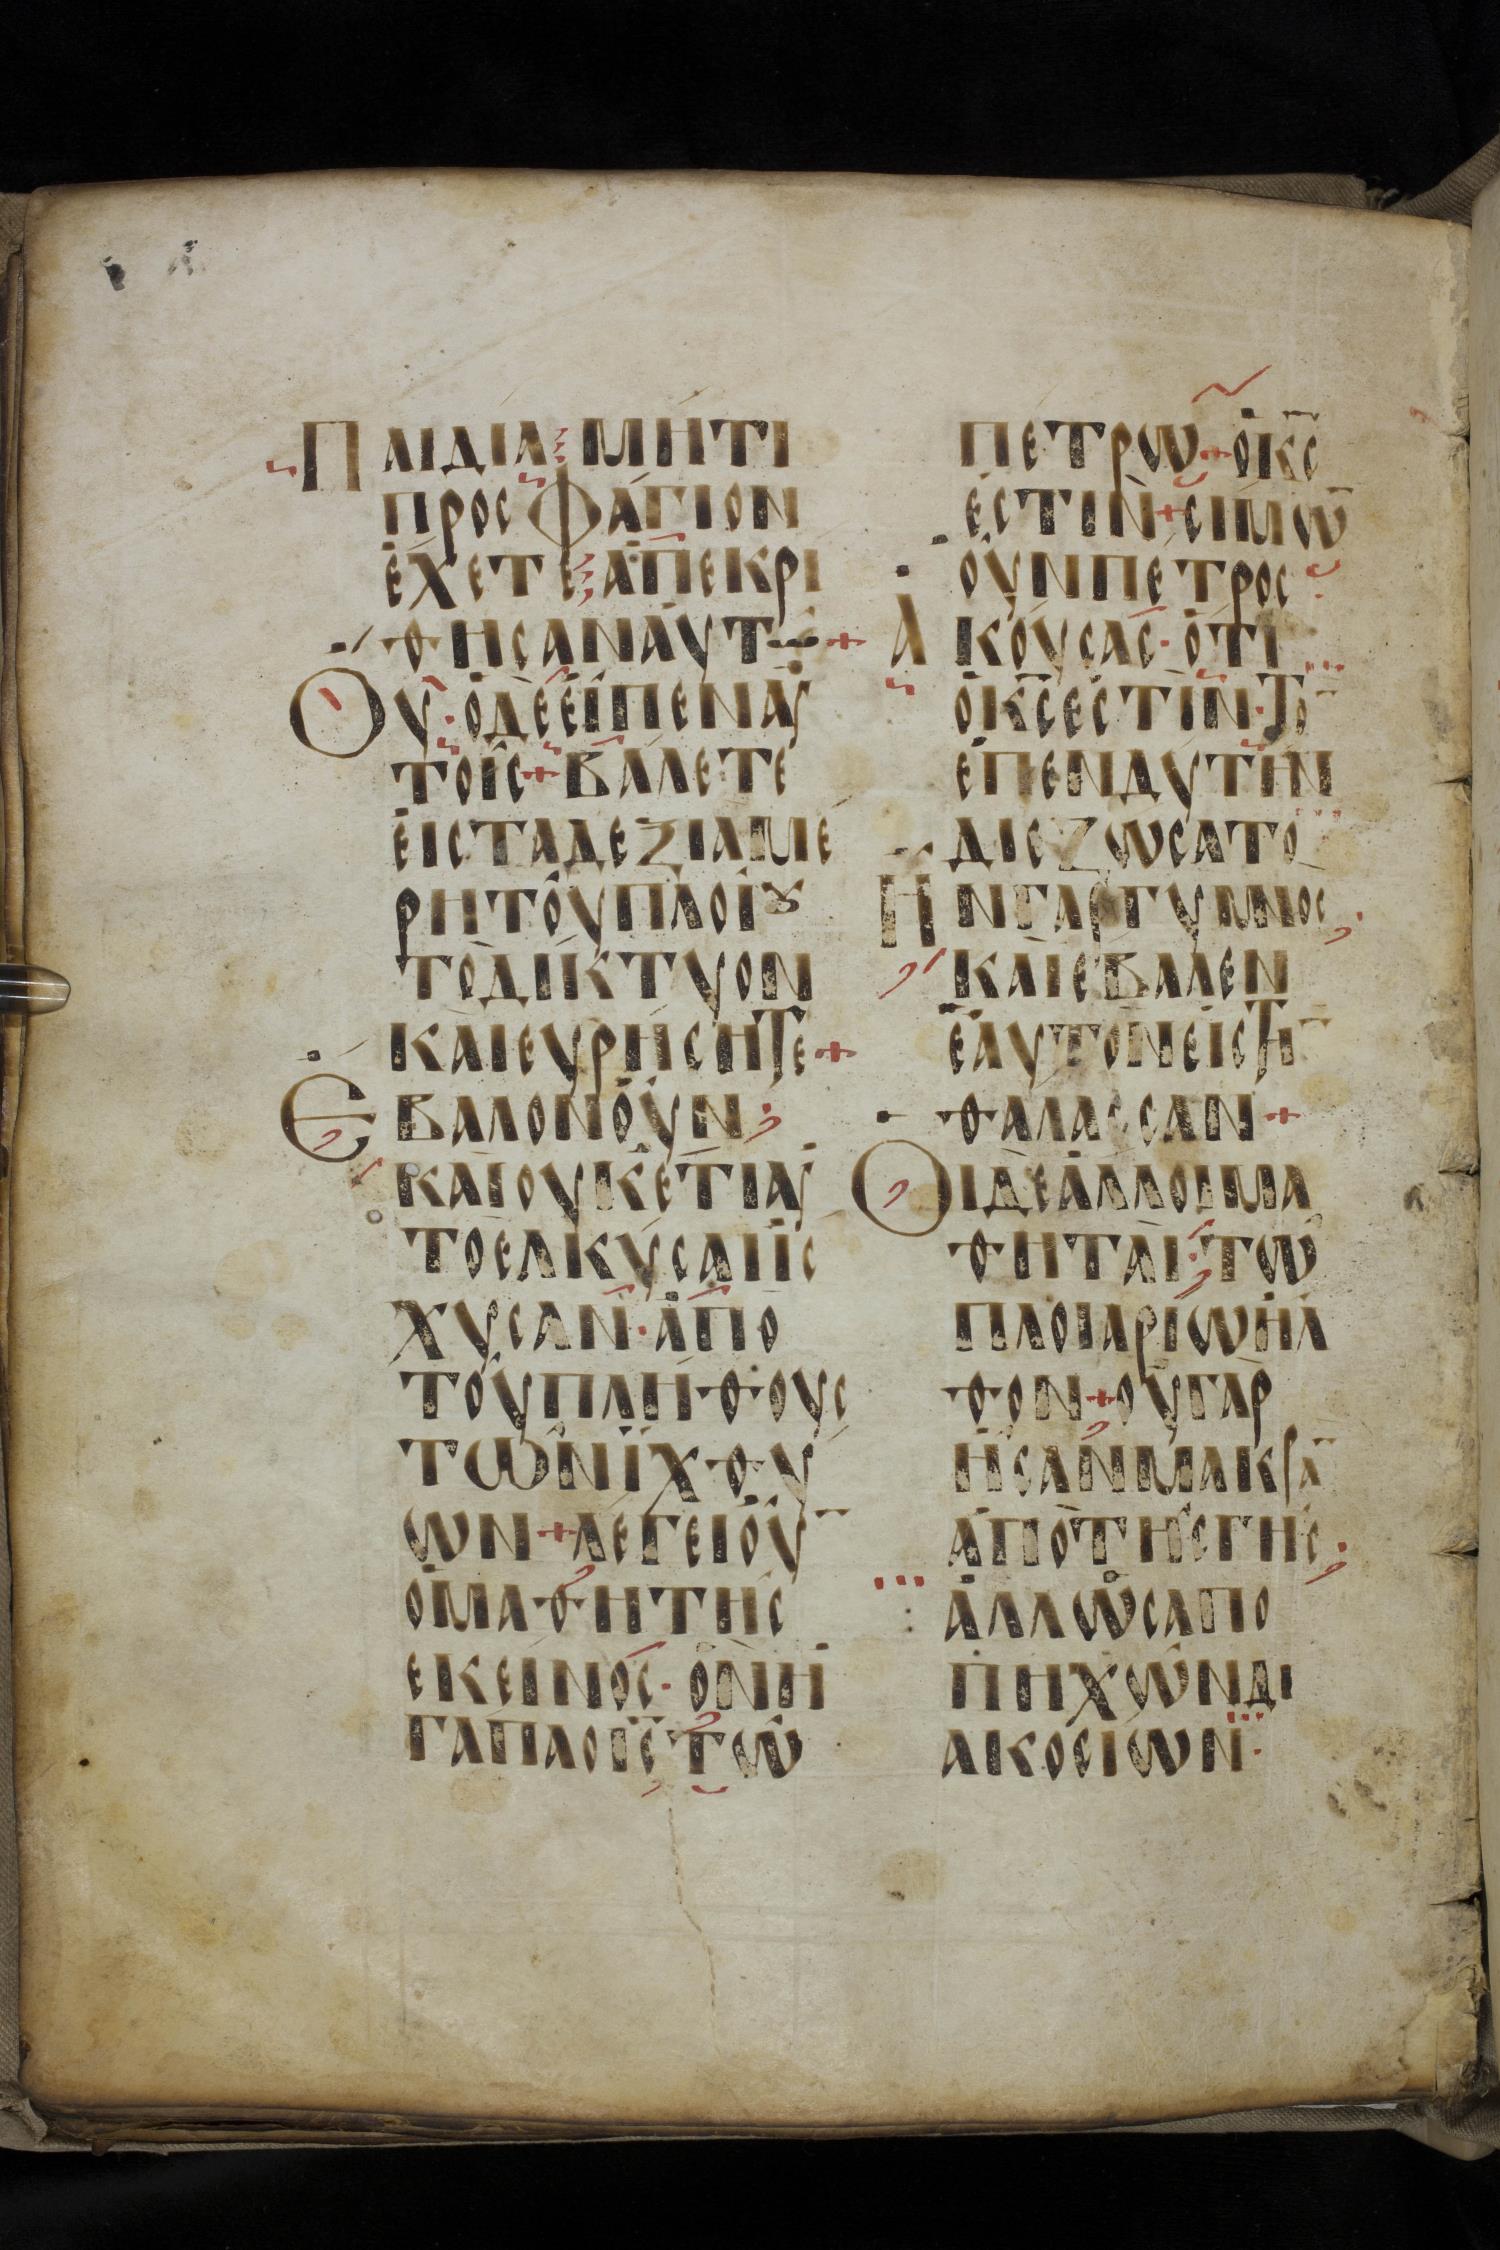 ΠΑΙΔΙΑ ΜΗΤΙ
ΠΡΟCΦΑΓΙΟΝ
ΕΧΕΤΕ ΑΠΕΚΡΙ
ΘΗCΑΝΑΥΤ +
ΟΥ· ΟΔΕΕΙΠΕΝΑΥ
ΤΟΙC + ΒΑΛΕΤΕ
ΕΙCΤΑΔΕΞΙΑΜΕ
ΡΗΤΟΥΠΛΟΙȢ
ΤΟΔΙΚΤΥΟΝ
ΚΑΙΕΥΡΗCΗΤΕ +
ΕΒΑΛΟΝΟΥΝ
ΚΑΙΟΥΚΕΤΙΑΥ
ΤΟΕΛΚΥCΑΙΙC
ΧΥCΑΝ· ΑΠΟ
ΤΟΥΠΛΗΘΟΥC
ΤΩΝΙΧΘΥ
ΩΝ + ΛΕΓΕΙΟΥ̅
ΟΜΑΘΗΤΗC
ΕΚΕΙΝΟC· ΟΝΗ
ΓΑΠΑΟΙ̅C̅ΤΩ
ΠΕΤΡΩ + ΟΚ̅C̅
ΕCΤΙΝ + CΙΜΩ̅
ΟΥΝΠΕΤΡΟC
ΑΚΟΥCΑC· ΟΤΙ
ΟΚ̅C̅ΕCΤΙΝ· ΤΟ̅
ΕΠΕΝΔΥΤΗΝ
ΔΙΕΖΩCΑΤΟ
ΗΝΓΑΡΓΥΜΝΟC
ΚΑΙΕΒΑΛΕΝ
ΕΑΥΤΟΝΕΙCΤΗ̅
ΘΑΛΑCCΑΝ +
ΟΙΔΕΑΛΛΟΙΜΑ
ΘΗΤΑΙ ΤΩ
ΠΛΟΙΑΡΙΩΗΛ
ΘΟΝ + ΟΥΓΑΡ
ΗCΑΝΜΑΚΡΑ̅
ΑΠΟΤΗCΓΗC
ΑΛΛΩCΑΠΟ
ΠΗΧΩΝΔΙ
ΑΚΟCΙΩΝ·